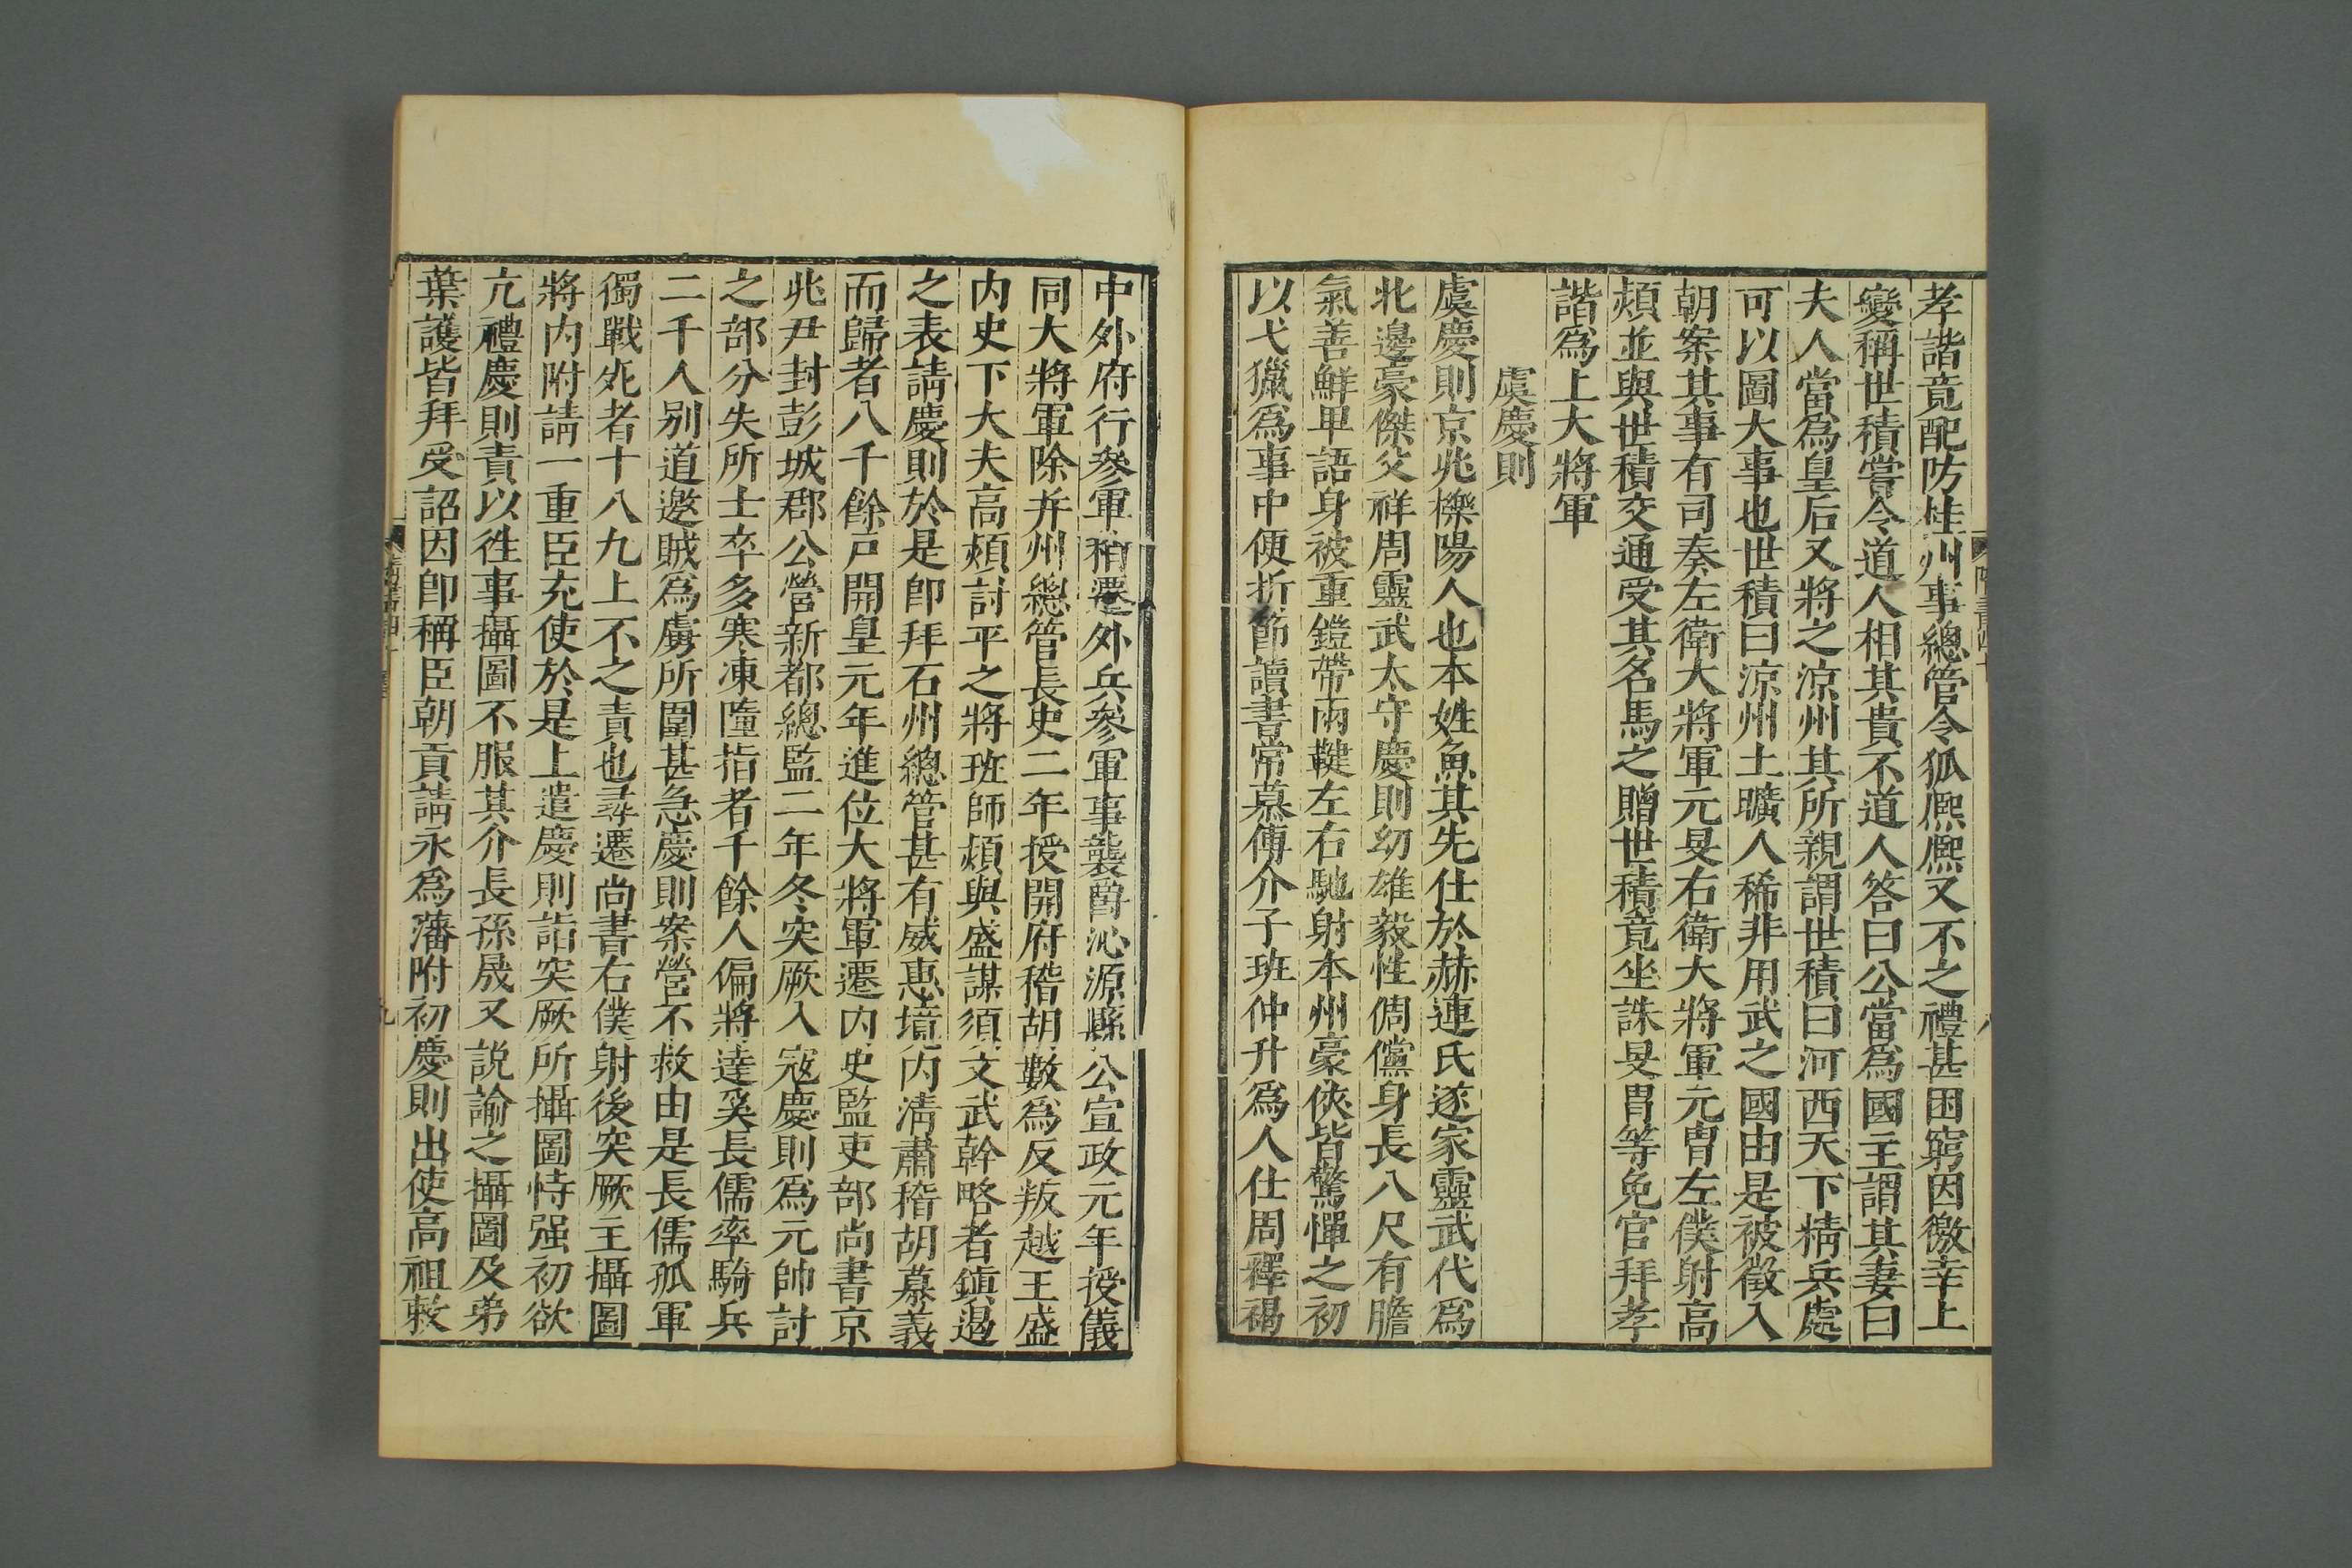 孝諧竟配防桂州事總管令狐熈熈又不之禮甚困窮因徼幸上
變稱世積嘗令道人相其貴不道人答曰公當爲國主謂其妻曰
夫人當爲皇后又將之涼州其所親謂世積曰河西天下精兵處
可以圖大事也世積曰涼州土曠人稀非用武之國由是被徵入
朝案其事有司奏左衛大將軍元旻右衛大將軍元胄左僕射高
熲並與世積交通受其名馬之贈世積竟坐誅旻胄等免官拜孝
諧爲上大將軍
虞慶則
虞慶則京兆櫟陽人也本姓魚其先仕於赫連氏遂家靈武代爲
北邊豪傑父祥周靈武太守慶則幼雄毅性倜儻身長八尺有膽
氣善鮮卑語身被重鎧帶兩鞬左右馳射本州豪俠皆驚憚之初
以弋獵爲事中便折節讀書常慕傅介子班仲升爲人仕周釋褐
中外府行參軍稍遷外兵參軍事襲爵沁源縣公宣政元年授儀
同大將軍除并州總管長史二年授開府稽胡數爲反叛越王盛
内史下大夫高熲討平之將班師熲與盛謀須文武幹略者鎮遏
之表請慶則於是即拜石州總管甚有威惠境内清肅稽胡慕義
而歸者八千餘戸開皇元年進位大將軍遷内史監吏部尚書京
兆尹封彭城郡公營新都總監二年冬突厥入寇慶則爲元帥討
之部分失所士卒多寒凍墮指者千餘人偏將達奚長儒率騎兵
二千人别道邀賊爲虜所圍甚急慶則案營不救由是長儒孤軍
獨戰死者十八九上不之責也尋遷尚書右僕射後突厥主攝圖
將内附請一重臣充使於是上遣慶則詣突厥所攝圖恃强初欲
亢禮慶則責以徃事攝圖不服其介長孫晟又説諭之攝圖及弟
葉護皆拜受詔因即稱臣朝貢請永爲藩附初慶則出使高祖敕